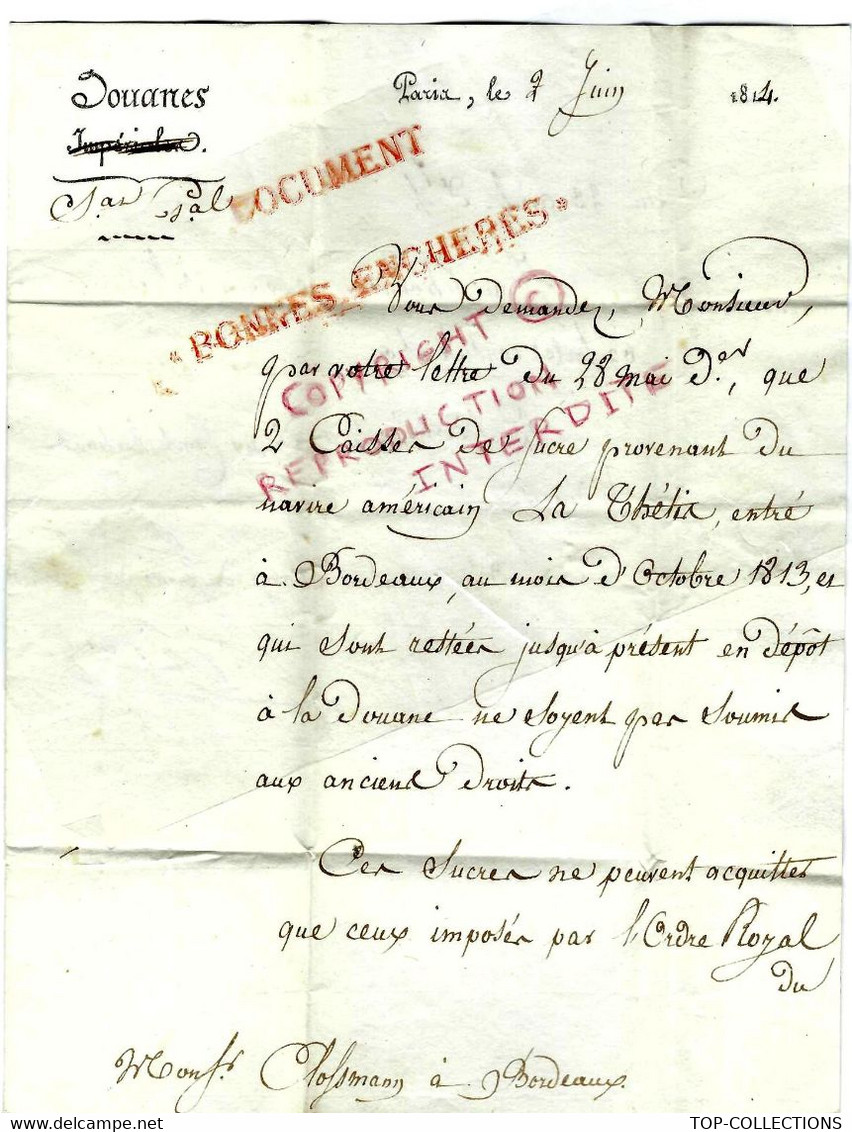 Douanes
Impériales.
Paris, le 2 Juin 1814.
DOCUMENT
"BONNES ENCHERES"
COPYRIGHT ©
REPRODUCTION
INTERDITE
Vous demandez, Monsieur,
par votre lettre du 28 mai d.er, que
2 Caisses de sucre provenant du
navire américain La Thétis, entré
à Bordeaux, au mois d'Octobre 1813, et
qui sont restées jusqu'à présent en dépôt
à la douane ne soyent pas soumis
aux anciens droits.
Ces sucres ne peuvent acquitter
que ceux imposés par l'Ordre Royal
du
Monsr. Clossmann à Bordeaux.
TOP-COLLECTIONS